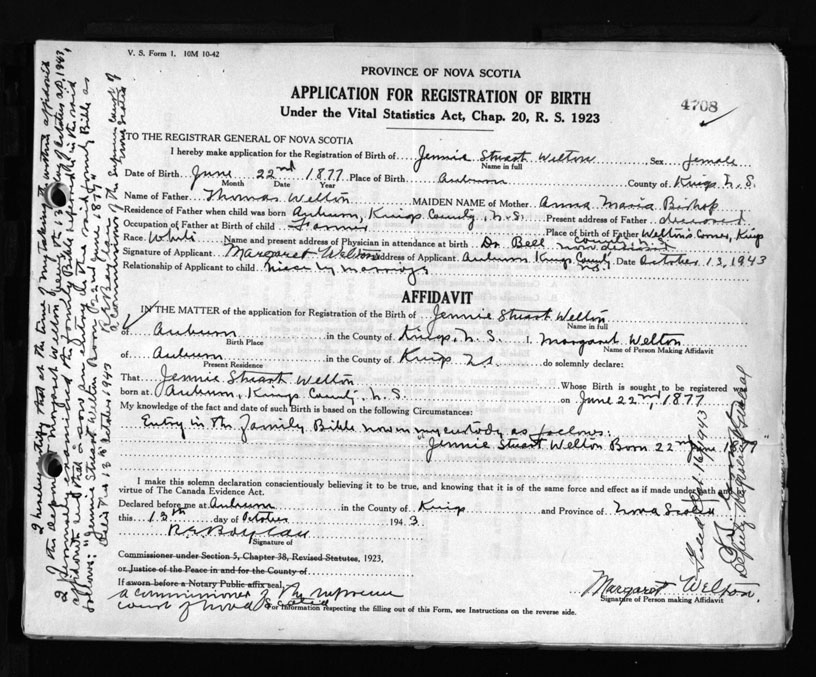 V. S. Form 1. 10M 10-42
PROVINCE OF NOVA SCOTIA
APPLICATION FOR REGISTRATION OF BIRTH
4708
Under the Vital Statistics Act, Chap. 20, R. S. 1923
TO THE REGISTRAR GENERAL OF NOVA SCOTIA
I hereby make application for the Registration of Birth of Jennie Stuart Welton Sex female
Name in full
Date of Birth June 22nd 1877 Place of Birth Auburn County of Kings N.S.
Month Date Year
Name of Father Thomas Welton MAIDEN NAME of Mother Anna Maria Bishop
Residence of Father when child was born Auburn, Kings County, N.S. Present address of Father deceased
Occupation of Father at Birth of child Farmer Place of birth of Father Welton's Corner, Kings
County N.S.
Race White Name and present address of Physician in attendance at birth Dr. Bell now deceased
Signature of Applicant Margaret Welton Address of Applicant Auburn Kings County N.S. Date October 13, 1943
Relationship of Applicant to child niece by marriage
AFFIDAVIT
IN THE MATTER of the application for Registration of the Birth of Jennie Stuart Welton
Name in full
of Auburn in the County of Kings, N.S. I, Margaret Welton
Birth Place Name of Person Making Affidavit
of Auburn in the County of Kings N.S. do solemnly declare:
Present Residence
That Jennie Stuart Welton Whose Birth is sought to be registered was
born at Auburn, Kings County, N.S. on June 22nd, 1877
My knowledge of the fact and date of such Birth is based on the following Circumstances:
Entry in the family Bible now in my custody as follows:
"Jennie Stuart Welton Born 22nd June 1877"
I make this solemn declaration conscientiously believing it to be true, and knowing that it is of the same force and effect as if made under oath and
virtue of The Canada Evidence Act.
Declared before me at Auburn in the County of Kings and Province of Nova Scotia
this 13th day of October 1943
Signature of
Commissioner under Section 5, Chapter 38, Revised Statutes, 1923,
or Justice of the Peace in and for the County of
If sworn before a Notary Public affix seal,
a commissioner of the supreme
court of Nova Scotia
Margaret Welton
Signature of Person making Affidavit
For information respecting the filling out of this Form, see Instructions on the reverse side.
I hereby certify that at the time of my taking the within affidavit
of the deponent Margaret Welton of the 13th day of October A.D. 1943,
I personally examined the family Bible referred to in the said
affidavit and that a sons an entry in the said family Bible as
follows: "Jennie Stuart Welton Born 22nd June 1877"
Dated this 13th October 1943
a Commissioner of the Supreme Court of
Nova Scotia
1943
Deputy Registrar General